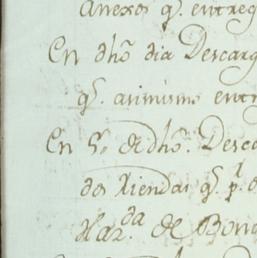 Anexos q.^e entreg
En dhō dia Descarg
q.^e asimismo entr
En 5,, de dhō. Desca
dos tiendas q.^e p.^r o
Haz.^da de Bona